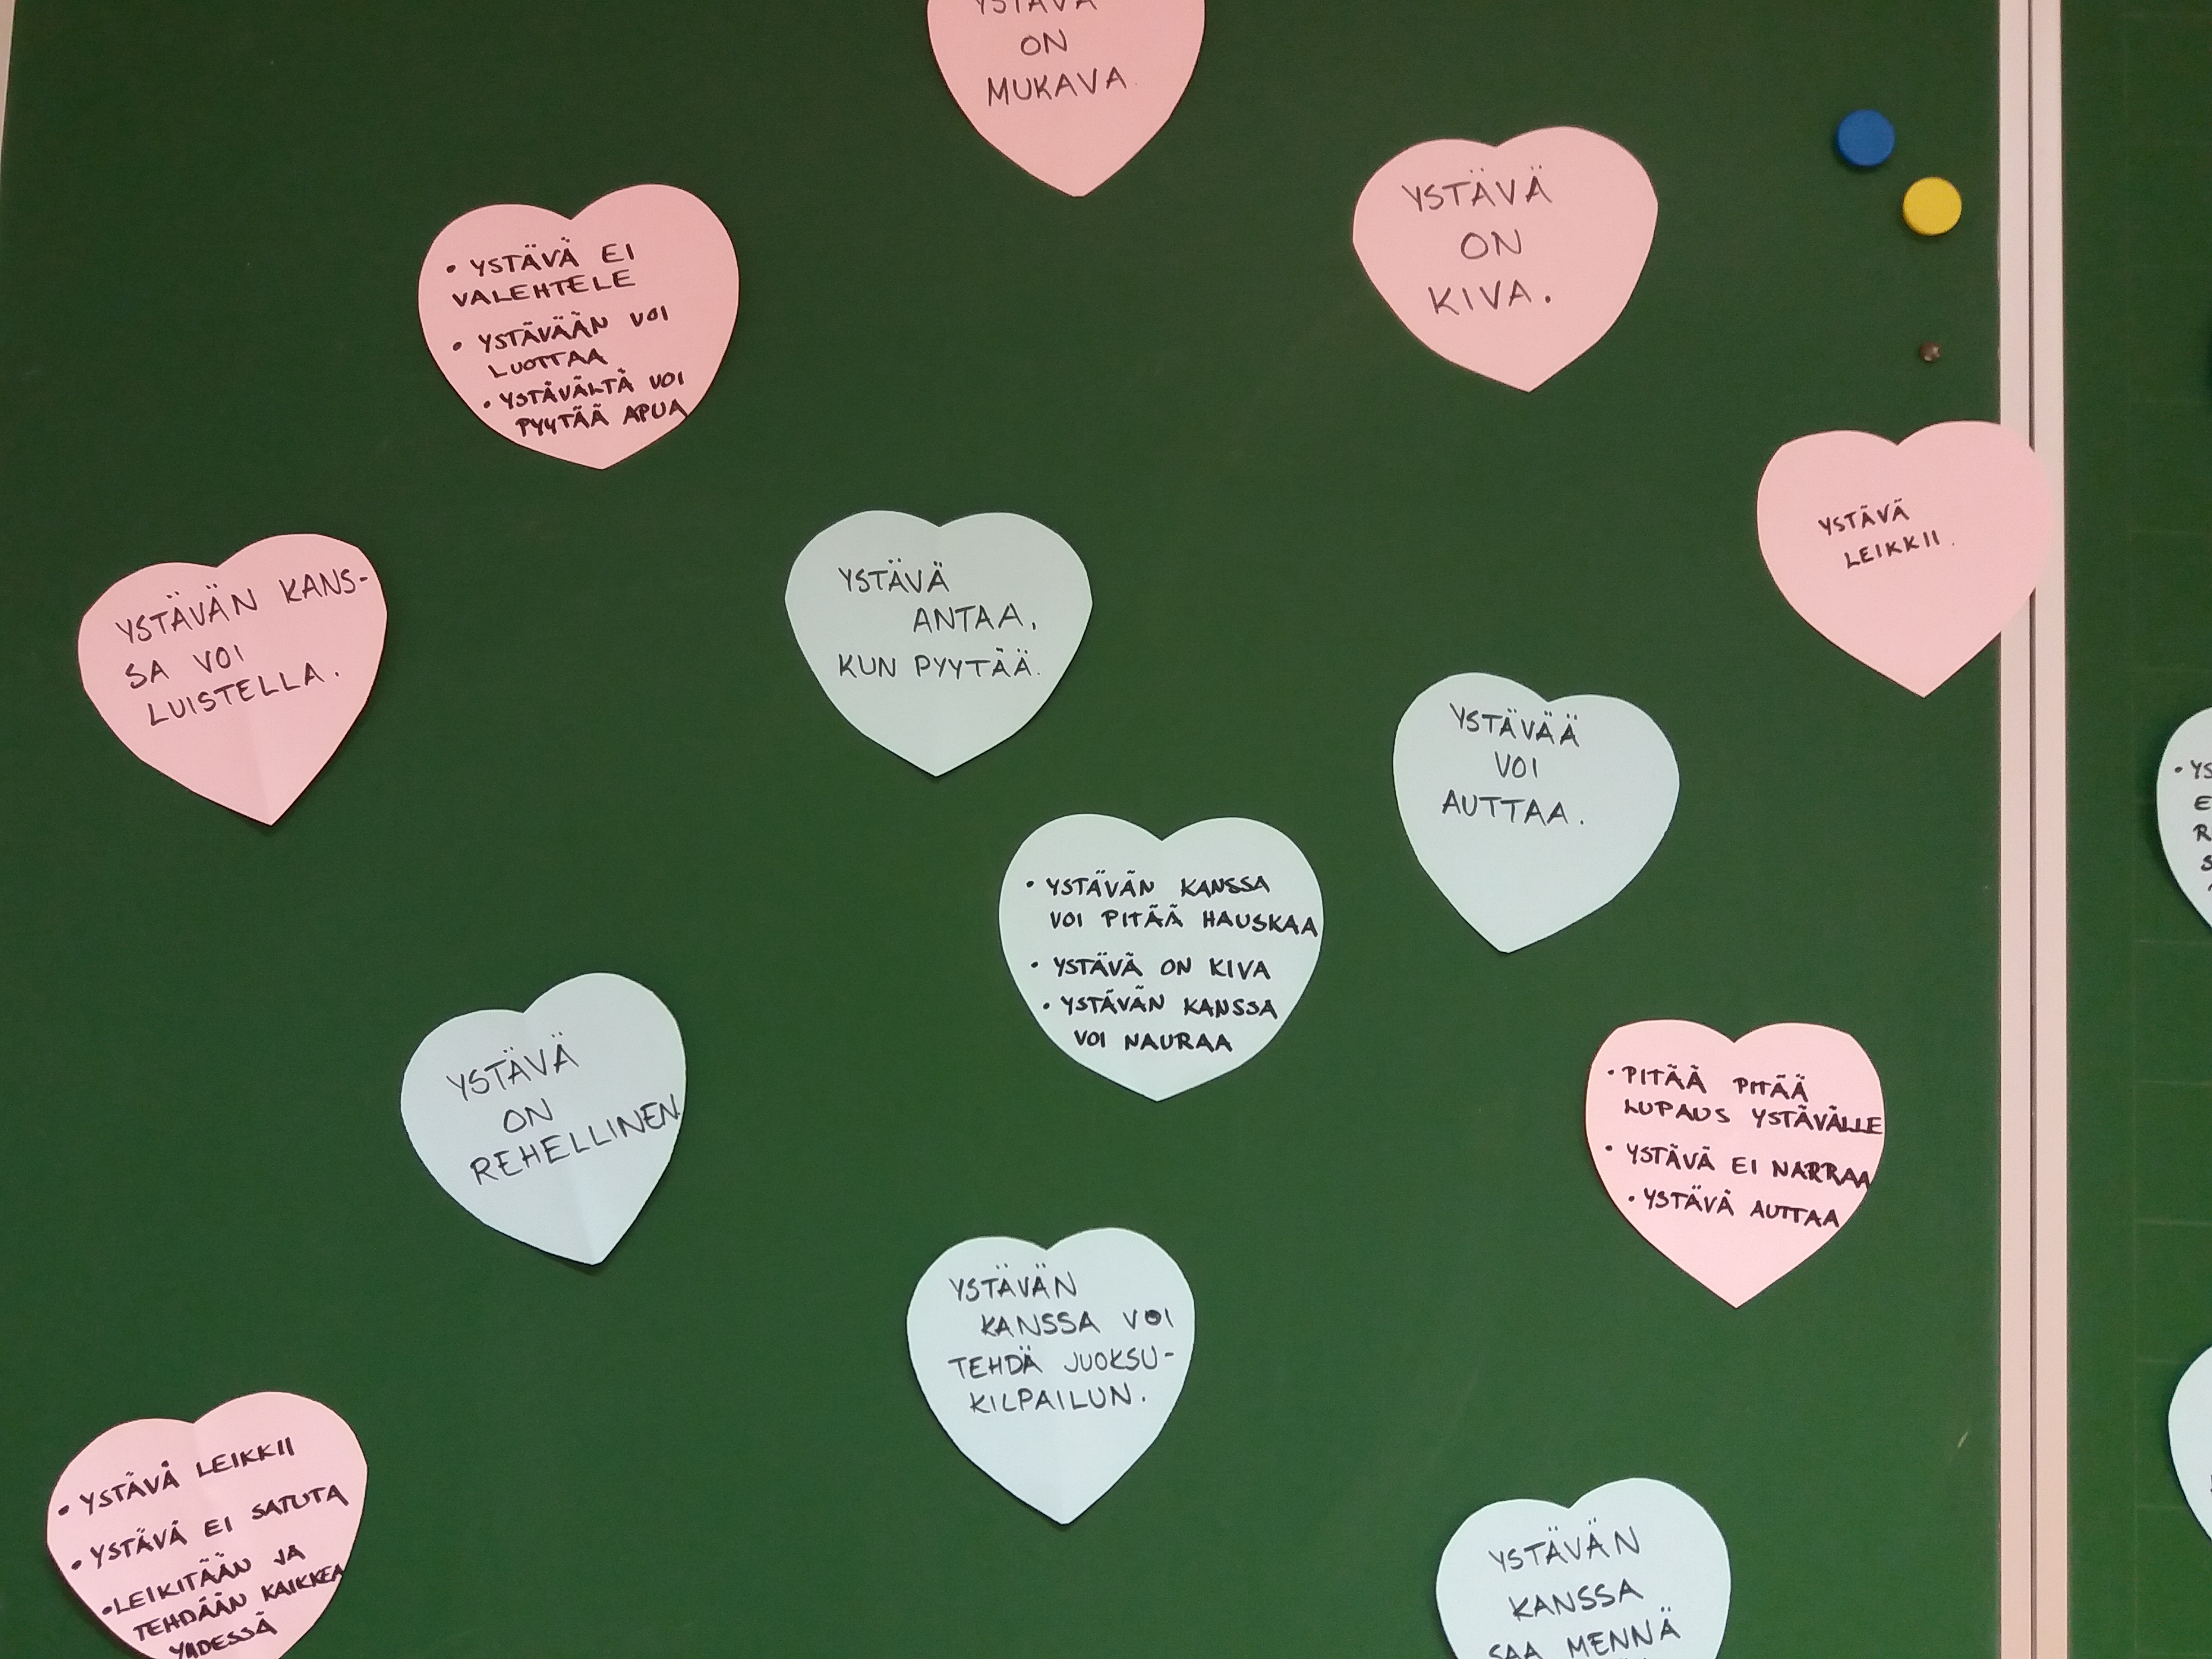 YSTÄVÄ
ON
MUKAVA.
• YSTÄVÄ EI
VALEHTELE
• YSTÄVÄÄN VOI
LUOTTAA
• YSTÄVÄLTÄ VOI
PYYTÄÄ APUA
YSTÄVÄ
ON
KIVA.
YSTÄVÄ
LEIKKII.
YSTÄVÄN KANS-
SA VOI
LUISTELLA.
YSTÄVÄ
ANTAA,
KUN PYYTÄÄ.
YSTÄVÄÄ
VOI
AUTTAA.
• YSTÄVÄN KANSSA
VOI PITÄÄ HAUSKAA
• YSTÄVÄ ON KIVA
• YSTÄVÄN KANSSA
VOI NAURAA
YSTÄVÄ
ON
REHELLINEN.
• PITÄÄ PITÄÄ
LUPAUS YSTÄVÄLLE
• YSTÄVÄ EI NARRAA
• YSTÄVÄ AUTTAA
YSTÄVÄN
KANSSA VOI
TEHDÄ JUOKSU-
KILPAILUN.
• YSTÄVÄ LEIKKII
• YSTÄVÄ EI SATUTA
• LEIKITÄÄN JA
TEHDÄÄN KAIKKEA
YHDESSÄ
YSTÄVÄN
KANSSA
SAA MENNÄ